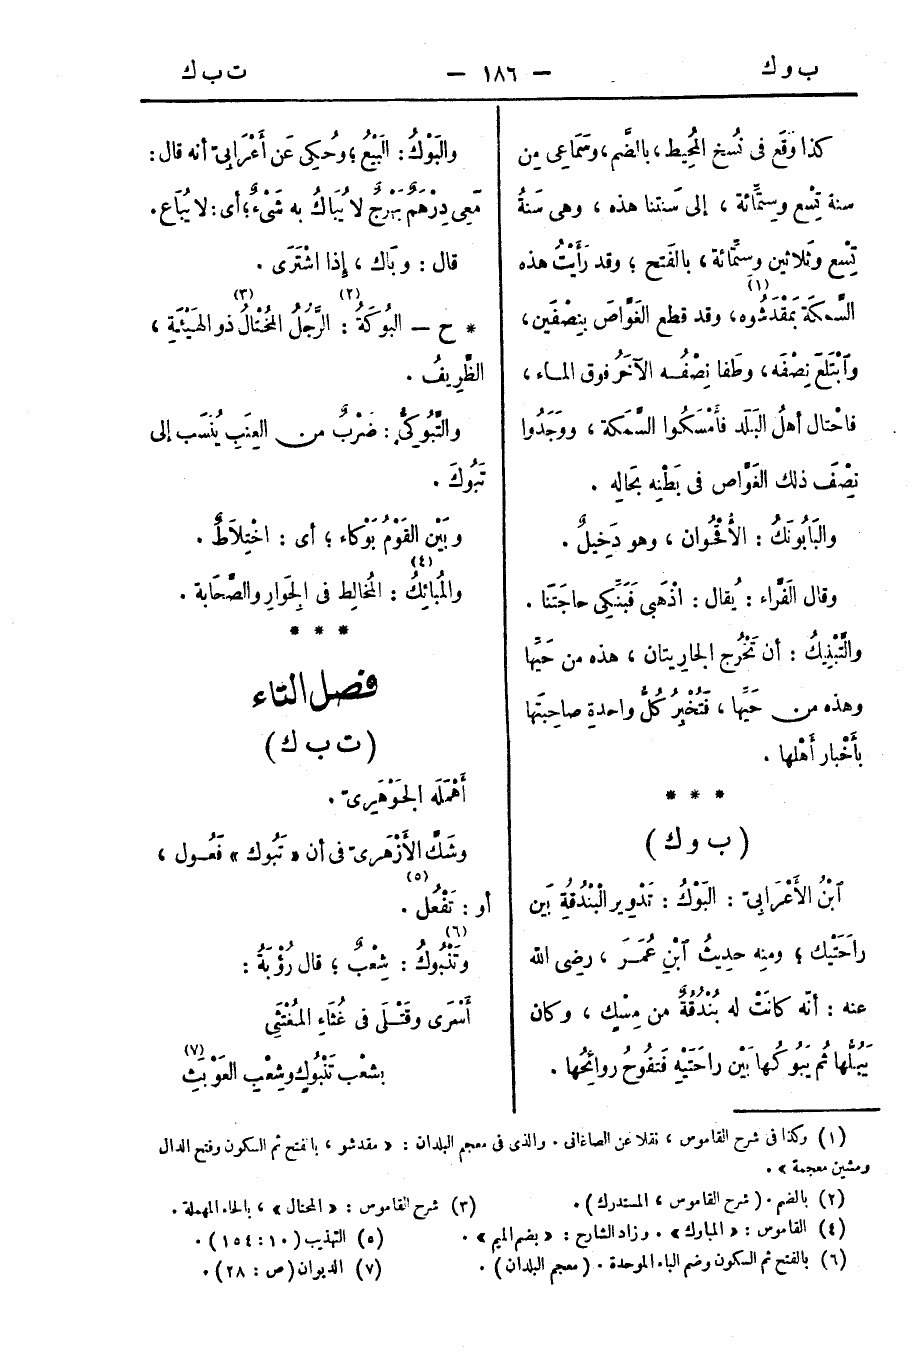 ب و ك
— ١٨٦ —
ت ب ك
كذا وَقَع فى نُسخ المُحِيط، بالضَّم، وسَمَاعِى مِن
سنة تِسْع وسِتِّمائة، إلى سَنتنا هذه، وهى سَنَةُ
تِسْع وثَلاثين وسِتِّمائة، بالفَتح؛ وقد رَأَيْتُ هذه
السَّمكَة بمَقْدَشُوه(١)، وقد قطع الغَوَّاصَ بنِصْفَين،
وٱبْتَلَعَ نِصْفَه، وطَفا نِصْفُـه الآخَرُ فوق المـاء،
فاحْتال أهلُ البَلَد فأَمْسَكُوا السَّمَكة، ووَجَدُوا
نِصْفَ ذلك الغَوَّاص فى بَطْنِه بحَالِه.
والبَابُونَكُ: الأُقْحُوان، وهو دَخِيلٌ.
وقال الفَرَّاء: يُقال: اذْهَبى فَبَنِّكِى حاجَتَنَا.
والتَّبْنِيكُ: أن تَخْرُج الجاريتان، هذه من حَيِّها
وهذه من حَيِّها، فَتُخْبِرُ كُلُّ واحدةٍ صاحِبتَها
بأَخْبار أَهْلها.
* * *
(ب و ك)
ٱبْنُ الأَعْرَابىّ: البَوْكُ: تَدْوِير البُنْدُقةِ بَين
رَاحَتَيْك؛ ومنه حديثُ ٱبْنِ عُمَـرَ، رضى الله
عنه: أنّه كانَتْ له بُنْدُقَةٌ من مِسْكٍ، وكان
يَبُلُّها ثُم يَبُوكُها بَيْن راحَتَيْهِ فَتفُوحُ روائِحُها.
والبَوْكُ: البَيْعُ؛ وحُكِى عَن أَعْرَابىّ أنه قال:
مَعِى دِرْهَمٌ بَهْرَجٌ لا يُبَاكُ به شَىْءٌ؛ أى: لا يُبَاع.
قال: وبَاك، إذا اشْتَرَى.
* ح — البُوكَةُ(٢): الرَّجُلُ المُخْتالُ(٣) ذو الهَيْئةِ،
الظَّرِيفُ.
والتَّبُوكىُّ: ضَرْبٌ من العِنَبِ يُنْسَب إلى
تَبُوكَ.
وبَيْن القَوْمِ بَوْكاء؛ أى: اخْتِلاَطٌ.
والمُبائِكُ(٤): المُخالِط فى الجِوارِ والصَّحَابة.
* * *
فصل التاء
(ت ب ك)
أَهْمَلَه الجَوْهَرِىّ.
وشَكَّ الأَزْهَرِىّ فى أن «تَبُوك» فَعُـول،
أو: تَفْعُل(٥).
وتَنْبُوكُ(٦): شِعْبٌ؛ قال رُؤْبَةُ:
أَسْرَى وقَتْـلَى فى غُثَاءِ المُغْتَثِى
بشعْب تَنْبُوكٍ وشِعْبِ العَوْبَثِ(٧)
(١) وكذا فى شرح القاموس، نقلا عن الصاغانى. والذى فى معجم البلدان: «مقدشو، بالفتح ثم السكون وفتح الدال
وشين معجمة».
(٢) بالضم. (شرح القاموس، المستدرك).
(٣) شرح القاموس: «المحتال»، بالحاء المهملة.
(٤) القاموس: «المبارك». وزاد الشارح: «بضم الميم».
(٥) التهذيب (١٠: ١٥٤).
(٦) بالفتح ثم السكون وضم الباء الموحدة. (معجم البلدان).
(٧) الديوان (ص: ٢٨).